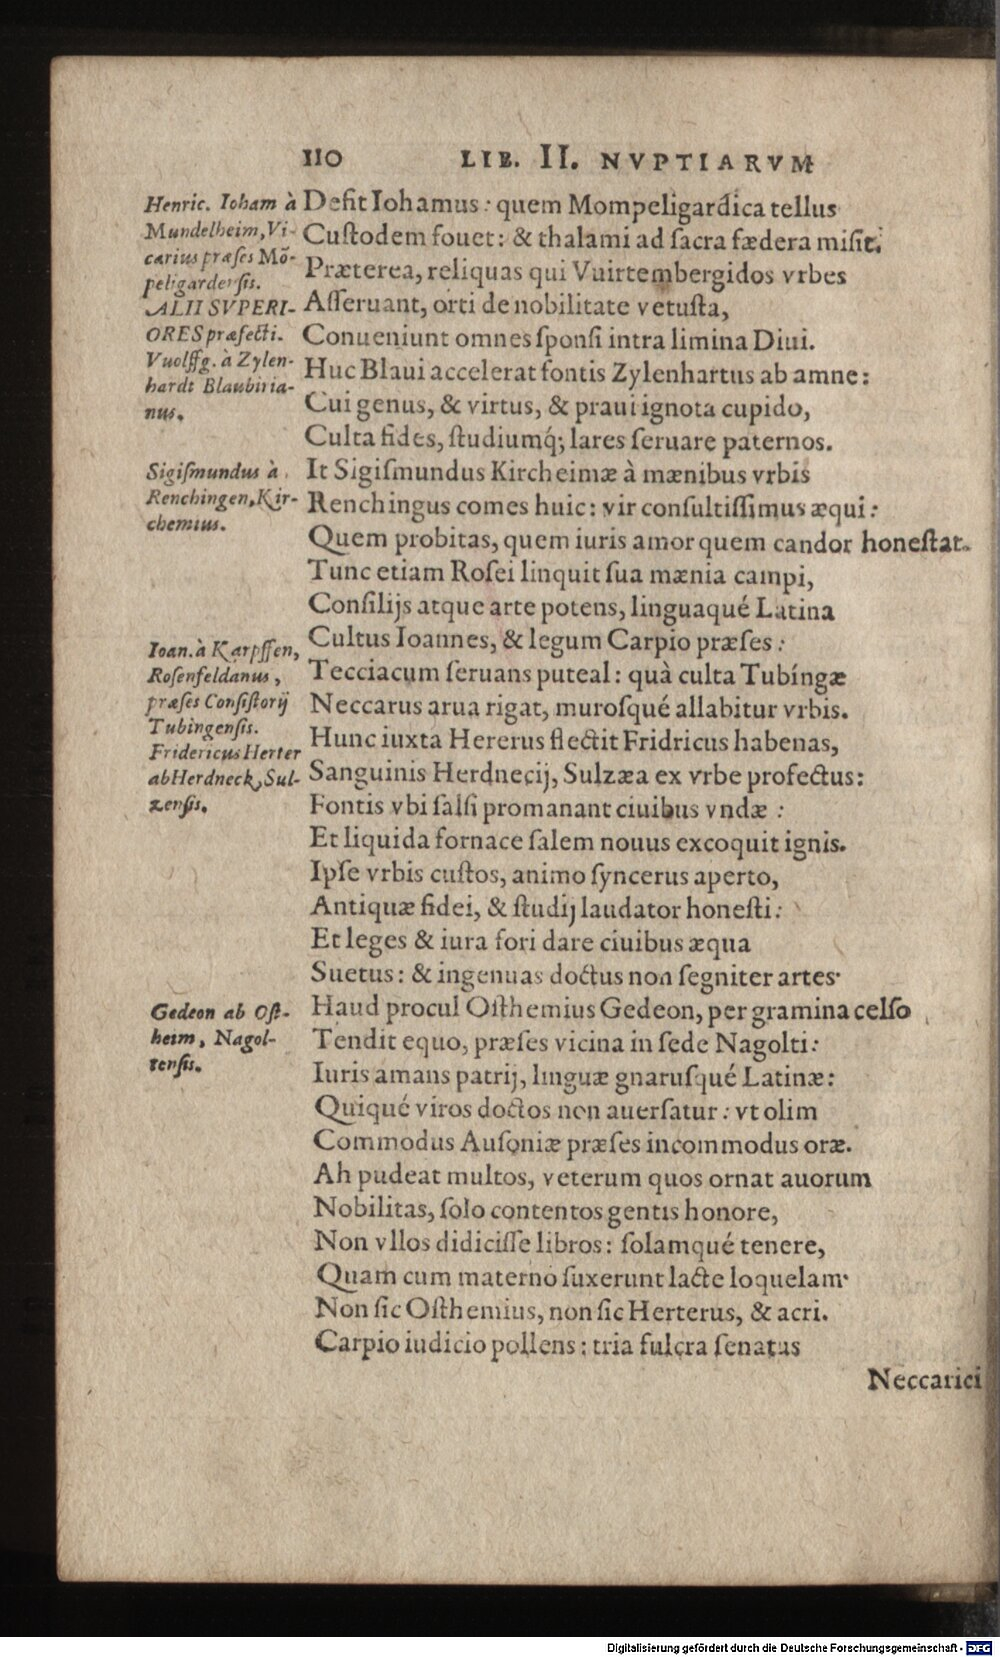 110 LIB. II. NVPTIARVM
Henric. Ioham à
Mundelheim, Vi-
carius præſes Mõ-
peligardenſis.
ALII SVPERI-
ORES præfecti.
Vuolffg. à Zylen-
hardt Blaubiria-
nus.
Sigiſmundus à
Renchingen, Kir-
chemius.
Ioan. à Karpffen,
Roſenfeldanus,
præſes Conſiſtorij
Tubingenſis.
Fridericus Herter
ab Herdneck, Sul-
zenſis.
Gedeon ab Oſt-
heim, Nagol-
tenſis.
Deſit Iohamus: quem Mompeligardica tellus
Cuſtodem fouet: & thalami ad ſacra fædera miſit.
Præterea, reliquas qui Vuirtembergidos vrbes
Aſſeruant, orti de nobilitate vetuſta,
Conueniunt omnes ſponſi intra limina Diui.
Huc Blaui accelerat fontis Zylenhartus ab amne:
Cui genus, & virtus, & praui ignota cupido,
Culta fides, ſtudiumq́; lares ſeruare paternos.
It Sigiſmundus Kircheimæ à mænibus vrbis
Renchingus comes huic: vir conſultiſſimus æqui:
Quem probitas, quem iuris amor quem candor honeſtat.
Tunc etiam Roſei linquit ſua mænia campi,
Conſilijs atque arte potens, linguaqué Latina
Cultus Ioannes, & legum Carpio præſes:
Tecciacum ſeruans puteal: quà culta Tubíngæ
Neccarus arua rigat, muroſqué allabitur vrbis.
Hunc iuxta Hererus flectit Fridricus habenas,
Sanguinis Herdnecij, Sulzæa ex vrbe profectus:
Fontis vbi ſalſi promanant ciuibus vndæ:
Et liquida fornace ſalem nouus excoquit ignis.
Ipſe vrbis cuſtos, animo ſyncerus aperto,
Antiquæ fidei, & ſtudij laudator honeſti:
Et leges & iura fori dare ciuibus æqua
Suetus: & ingenuas doctus non ſegniter artes·
Haud procul Oſthemius Gedeon, per gramina celſo
Tendit equo, præſes vicina in ſede Nagolti:
Iuris amans patrij, linguæ gnaruſqué Latinæ:
Quiqué viros doctos non auerſatur: vt olim
Commodus Auſoniæ præſes incommodus oræ.
Ah pudeat multos, veterum quos ornat auorum
Nobilitas, ſolo contentos gentis honore,
Non vllos didiciſſe libros: ſolamqué tenere,
Quam cum materno ſuxerunt lacte loquelam·
Non ſic Oſthemius, non ſic Herterus, & acri.
Carpio iudicio pollens: tria fulcra ſenatus
Neccarici
Digitalisierung gefördert durch die Deutsche Forschungsgemeinschaft - DFG